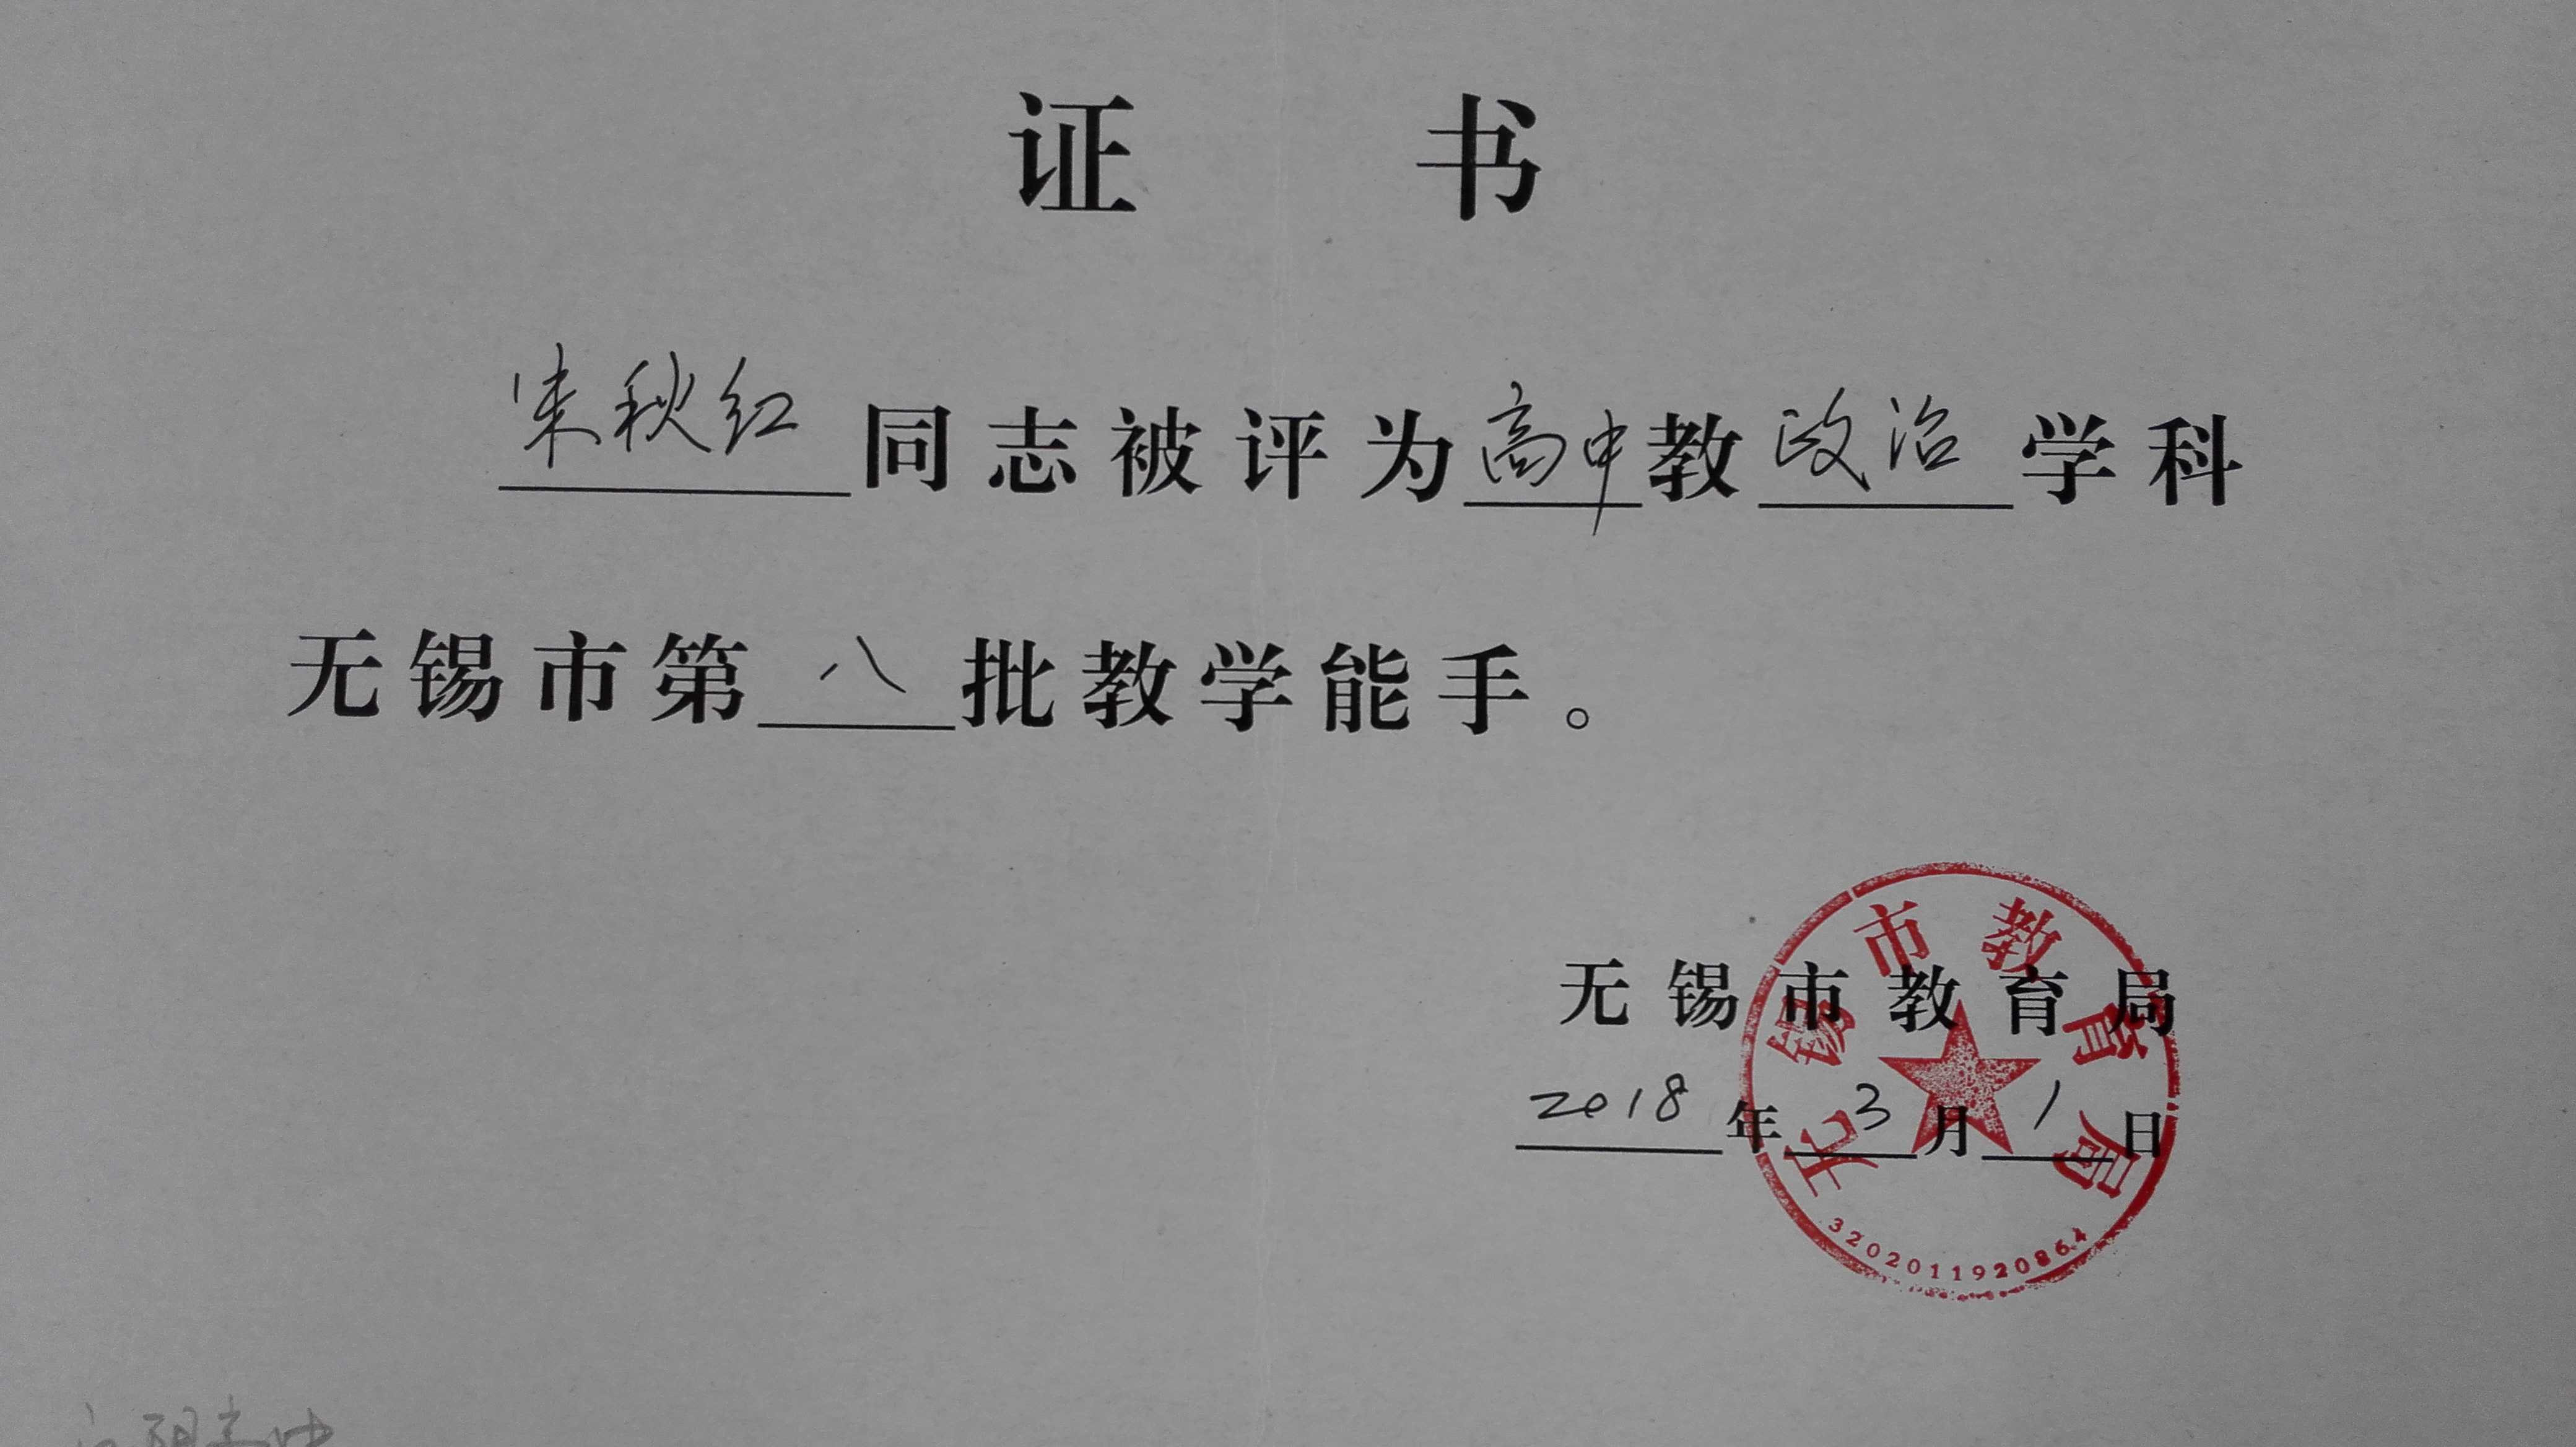 证书
宋秋红同志被评为高中教政治学科
无锡市第八批教学能手。
无锡市教育局
无锡市教育局
2018年3月1日
3202011920864